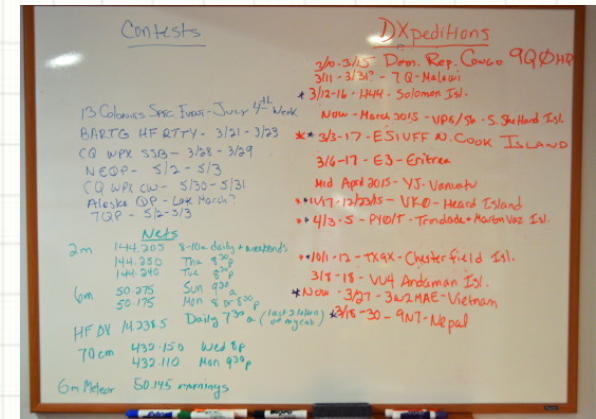 Contests
13 Colonies Spec. Event - July 4th Week
BARTG HF RTTY - 3/21 - 3/23
CQ WPX SSB - 3/28 - 3/29
NEQP - 5/2 - 5/3
CQ WPX CW - 5/30 - 5/31
Alaska QP - Late March?
7QP - 5/2-5/3
Nets
2m 144.205 8-10a daily + weekends
144.250 Thu 8³⁰p
144.240 Tue 8³⁰p
6m 50.275 Sun 9³⁰a
50.175 Mon 8 or 8³⁰p
HF DV 14.2385 Daily 7³⁰a (last 3 letters of my call)
70cm 432.150 Wed 8p
432.110 Mon 9³⁰p
6m Meteor 50.145 mornings
DXpeditions
3/0-3/15 Dem. Rep. Congo 9QØHQ
3/11 - 3/31? - 7Q - Malawi
* 3/12-16 - H44 - Solomon Isl.
Now - March 2015 - VP8/Sh - S. Shetland Isl.
** 3/3-17 - E51UFF N. COOK ISLAND
3/6-17 - E3 - Eritrea
Mid April 2015 - YJ - Vanuatu
** 11/17 - 12/23/15 - VKØ - Heard Island
** 4/3-5 - PYØ/T - Trindade + Martin Vaz Isl.
** 10/1-12 - TX9X - Chesterfield Isl.
3/8-18 - VU4 Andaman Isl.
* Now - 3/27 - 3W2MAE - Vietnam
* 3/18-30 - 9N7 - Nepal